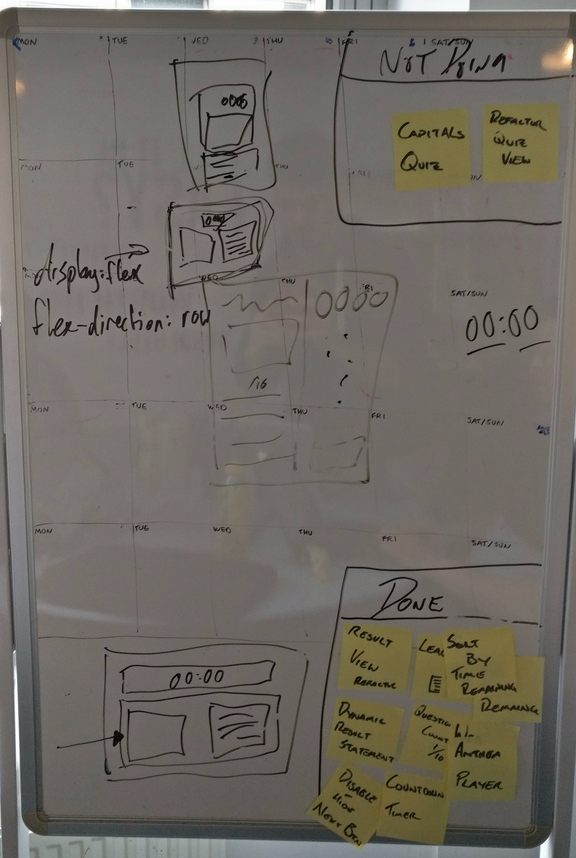 MON TUE WED THU FRI SAT/SUN
NOT DOING
0000
CAPITALS
QUIZ
REFACTOR
QUIZ
VIEW
MON TUE THU
display:flex
flex-direction: row
WED THU FRI SAT/SUN
0000
00:00
/16
MON TUE WED THU FRI SAT/SUN
MON TUE WED THU FRI SAT/SUN
DONE
RESULT
VIEW
REFACTOR
SORT
BY
TIME
REMAINING
REMAINING
DYNAMIC
RESULT
STATEMENT
QUESTION
COUNT
1/10
ANOTHER
PLAYER
DISABLE
HIDE
NEXT BTN
COUNTDOWN
TIMER
00:00